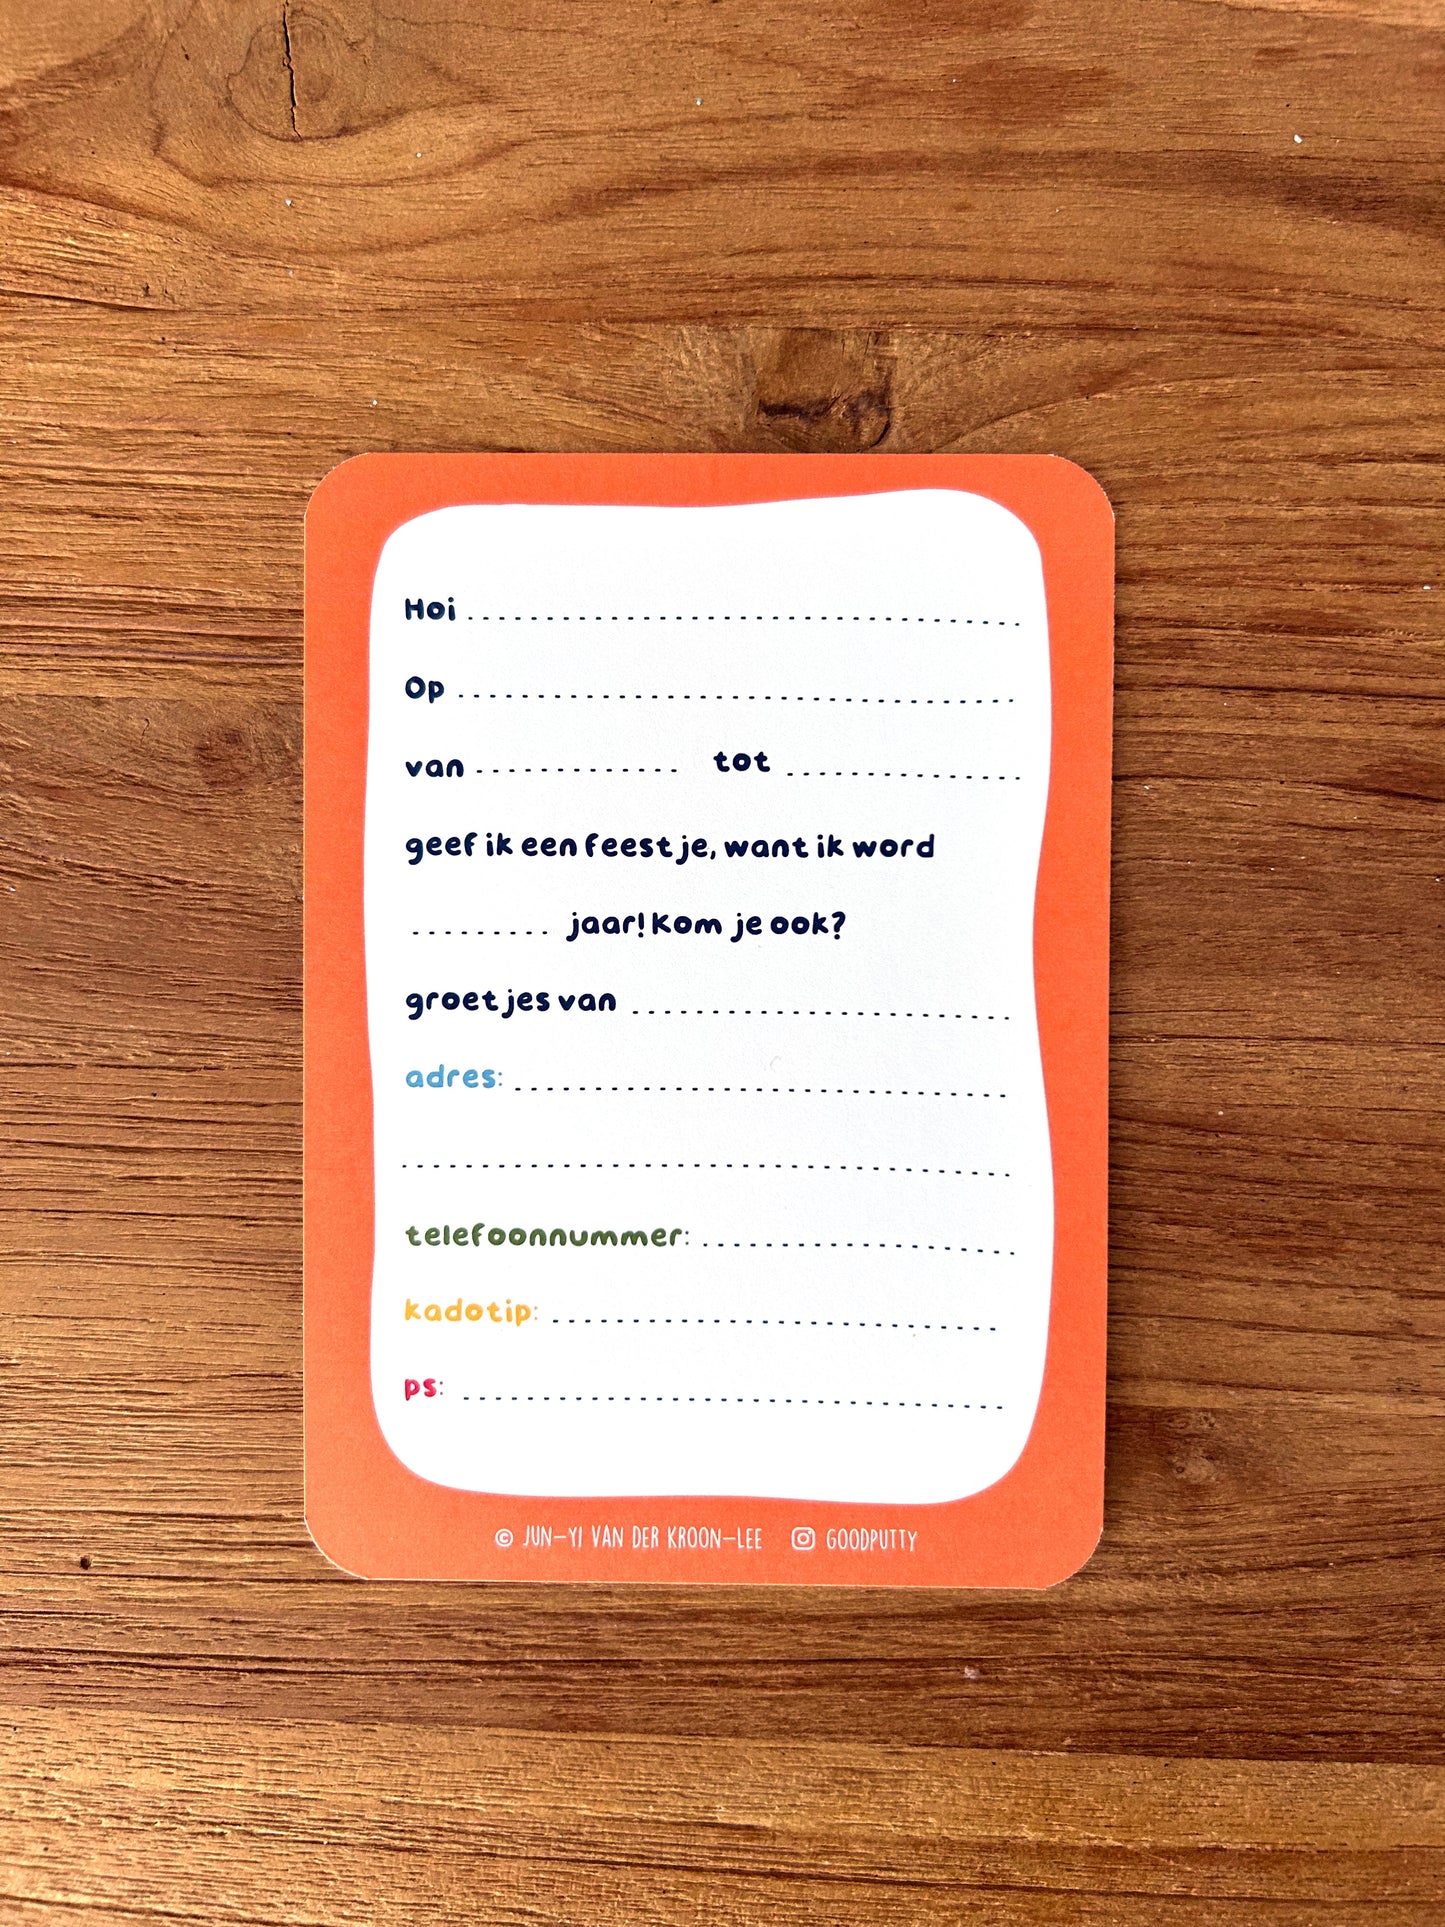 Hoi
Op
van tot
geef ik een feestje, want ik word
jaar! Kom je ook?
groetjes van
adres:
telefoonnummer:
kadotip:
ps:
© JUN-YI VAN DER KROON-LEE GOODPUTTY